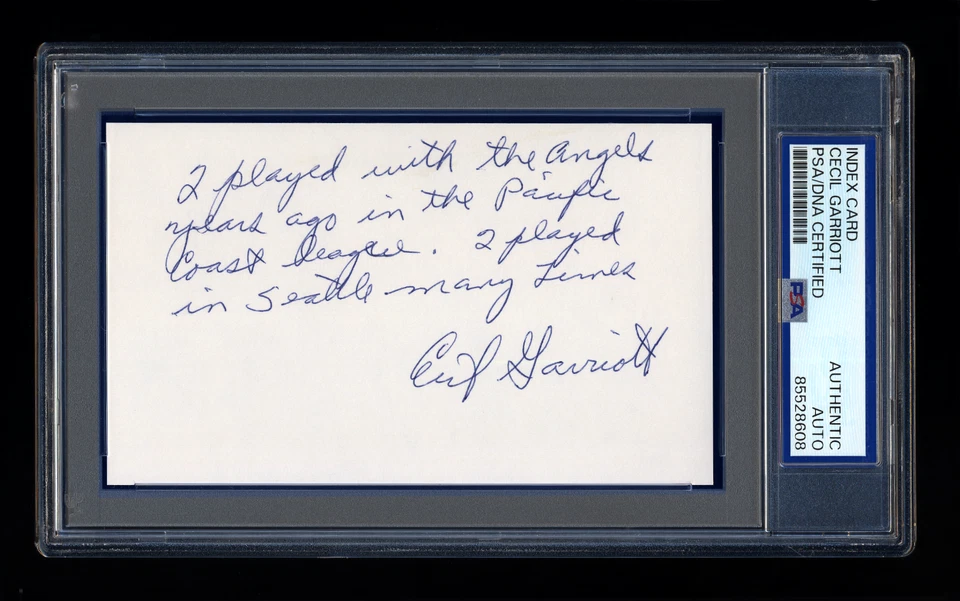 I played with the Angels
years ago in the Pacific
Coast League. I played
in Seattle many times
Cecil Garriott
INDEX CARD
CECIL GARRIOTT
PSA/DNA CERTIFIED
PSA
AUTHENTIC
AUTO
85528608